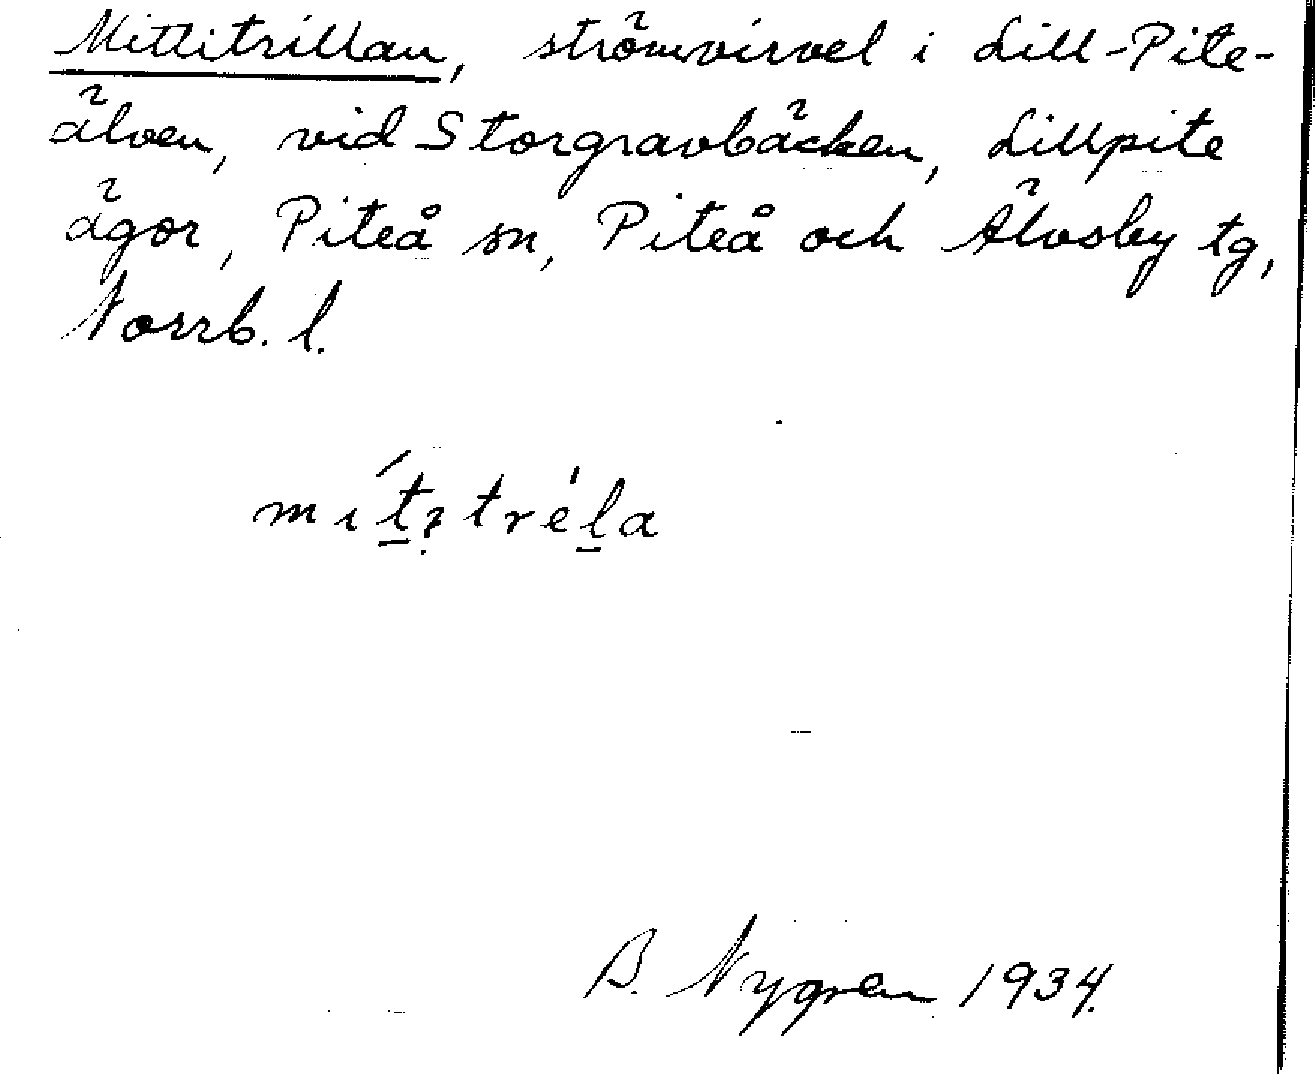 Mittitrillan, strömvirvel i Lill-Pite-
älven, vid Storgravbäcken, Lillpite
ägor, Piteå sn, Piteå och Älvsby tg,
Norrb. l.
B. Nygren 1934.